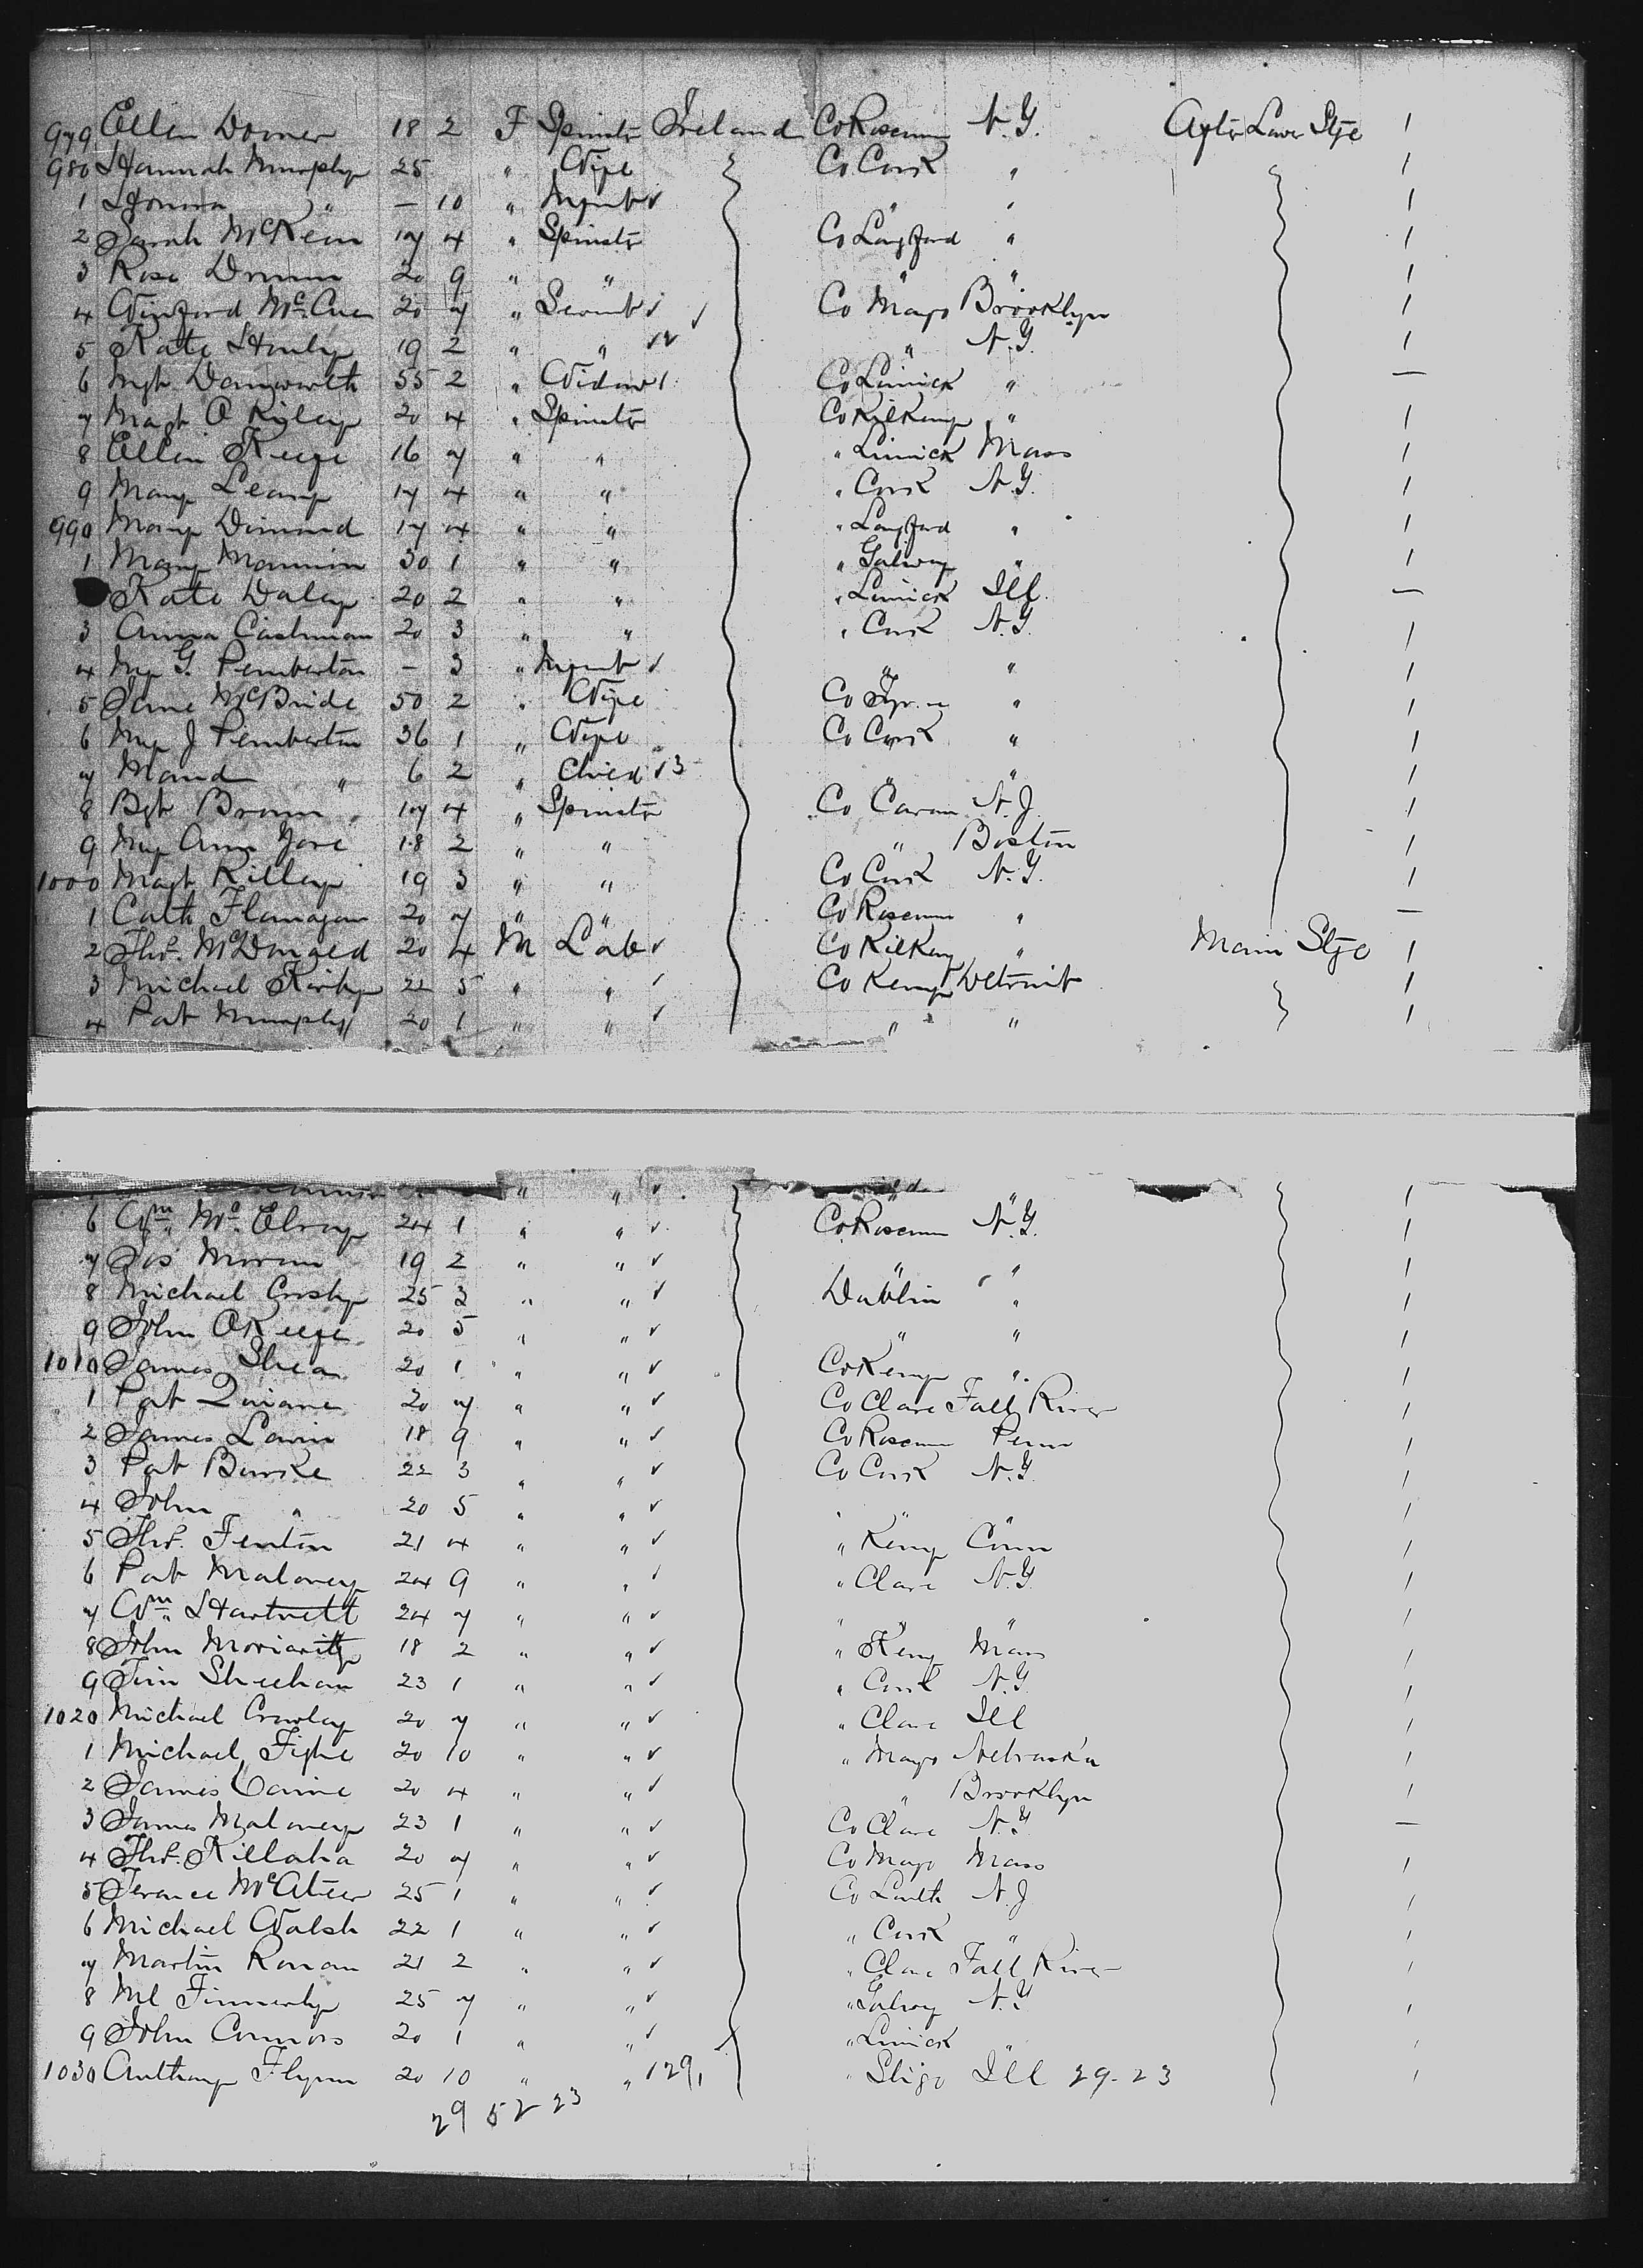 979 Ellen Dorner 18 2 F Spinstr Ireland Co Roscmn N.Y. After Lower Stge 1
980 Hannah Murphy 25 " Wife Co Cork " 1
1 Honora " — 10 " Infnt ✓ " " 1
2 Sarah McKeon 17 4 " Spinstr Co Longford " 1
3 Rose 20 9 " " " " 1
4 Winford McCue 20 7 " Servnt ✓ Co Mayo Brooklyn 1
5 Kate Henly 19 2 " " ✓ " N.Y. 1
6 Mgt 55 2 " Widow 1 Co Limrick " —
7 Magt O Rigley 20 4 " Spinstr Co Kilkeny " 1
8 Ellen Keefe 16 7 " " " Limrick Mass 1
9 Mary Leamy 17 4 " " " Cork N.Y. 1
990 Mary Dimond 17 4 " " " Longford " 1
1 Mary Mannion 30 1 " " " Galway " 1
Kate Daley 20 2 " " " Limrick Ill. —
3 Anna Cashman 20 3 " " " Cork N.Y. 1
4 My G. Pemberton — 3 " Infnt ✓ " " 1
5 Jane McBride 50 2 " Wife Co " 1
6 My J Pemberton 36 1 " Wife Co Cork " 1
7 Maud " 6 2 " Child 13 " " 1
8 Bgt Brown 17 4 " Spinstr Co Cavan N.J. 1
9 My Ann Gore 18 2 " " " Boston 1
1000 Magt Killey 19 3 " " Co Cork N.Y. 1
1 Cath Flanagan 20 7 " " Co Roscmn " —
2 Thos. McDonald 20 4 M Lab ✓ Co Kilkeny " Main Stge 1
3 Michael Kirby 22 5 " " ✓ Co Kerry Detroit 1
4 Pat Murphy 20 1 " " ✓ " " 1
" " ✓ " 1
6 Wm McElroy 24 1 " " ✓ Co Roscmn N.Y. 1
7 Jas Moran 19 2 " " ✓ " " 1
8 Michael Crosby 25 3 " " ✓ Dublin " 1
9 John OKeefe 20 5 " " ✓ " " 1
1010 James Shea 20 1 " " ✓ Co Kerry " 1
1 Pat Quinane 20 7 " " ✓ Co Clare Fall River 1
2 James Lavin 18 9 " " ✓ Co Roscmn Penn 1
3 Pat Burke 22 3 " " ✓ Co Cork N.Y. 1
4 John " 20 5 " " ✓ " " 1
5 Thos. Fenton 21 4 " " ✓ " Kerry Conn 1
6 Pat Maloney 24 9 " " ✓ " Clare N.Y. 1
7 Wm Hartnett 24 7 " " ✓ " " 1
8 John Moriarity 18 2 " " ✓ " Kerry Mass 1
9 Tim Sheehan 23 1 " " ✓ " Cork N.Y. 1
1020 Michael Crowley 20 7 " " ✓ " Clare Ill 1
1 Michael Fighe 20 10 " " ✓ " Mayo Nebraska 1
2 James Caine 20 4 " " ✓ " Brooklyn 1
3 James Maloney 23 1 " " ✓ Co Clare N.Y. —
4 Thos. Killaha 20 7 " " ✓ Co Mayo Mass 1
5 Terance McAteer 25 1 " " ✓ Co Louth N.J 1
6 Michael Walsh 22 1 " " ✓ " Cork " 1
7 Martin Ronan 21 2 " " ✓ " Clare Fall River 1
8 Ml Finnerty 25 7 " " ✓ " Galway N.Y 1
9 John Connors 20 1 " " ✓ " Limrick " 1
1030 Anthony Flynn 20 10 " " 129 " Sligo Ill 29-23 1
29 52 23